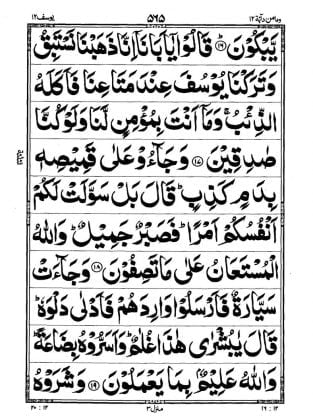 وما من دابة ١٢ ٥٦٥ يوسف ١٢
يَّبْكُوْنَ ﴿١٦﴾ قَالُوْا يٰۤاَبَانَاۤ اِنَّا ذَهَبْنَا نَسْتَبِقُ
وَتَرَكْنَا يُوْسُفَ عِنْدَ مَتَاعِنَا فَاَكَلَهُ
الذِّئْبُ ۚ وَمَاۤ اَنْتَ بِمُؤْمِنٍ لَّنَا وَلَوْ كُنَّا
صٰدِقِيْنَ ﴿١٧﴾ وَجَآءُوْ عَلٰى قَمِيْصِهٖ
بِدَمٍ كَذِبٍ ؕ قَالَ بَلْ سَوَّلَتْ لَكُمْ
اَنْفُسُكُمْ اَمْرًا ؕ فَصَبْرٌ جَمِيْلٌ ؕ وَاللّٰهُ
الْمُسْتَعَانُ عَلٰى مَا تَصِفُوْنَ ﴿١٨﴾ وَجَآءَتْ
سَيَّارَةٌ فَاَرْسَلُوْا وَارِدَهُمْ فَاَدْلٰى دَلْوَهٗ ؕ
قَالَ يٰبُشْرٰى هٰذَا غُلٰمٌ ؕ وَاَسَرُّوْهُ بِضَاعَةً ؕ
وَاللّٰهُ عَلِيْمٌۢ بِمَا يَعْمَلُوْنَ ﴿١٩﴾ وَشَرَوْهُ
١٢ : ١٦ منزل ٣ ١٢ : ٢٠